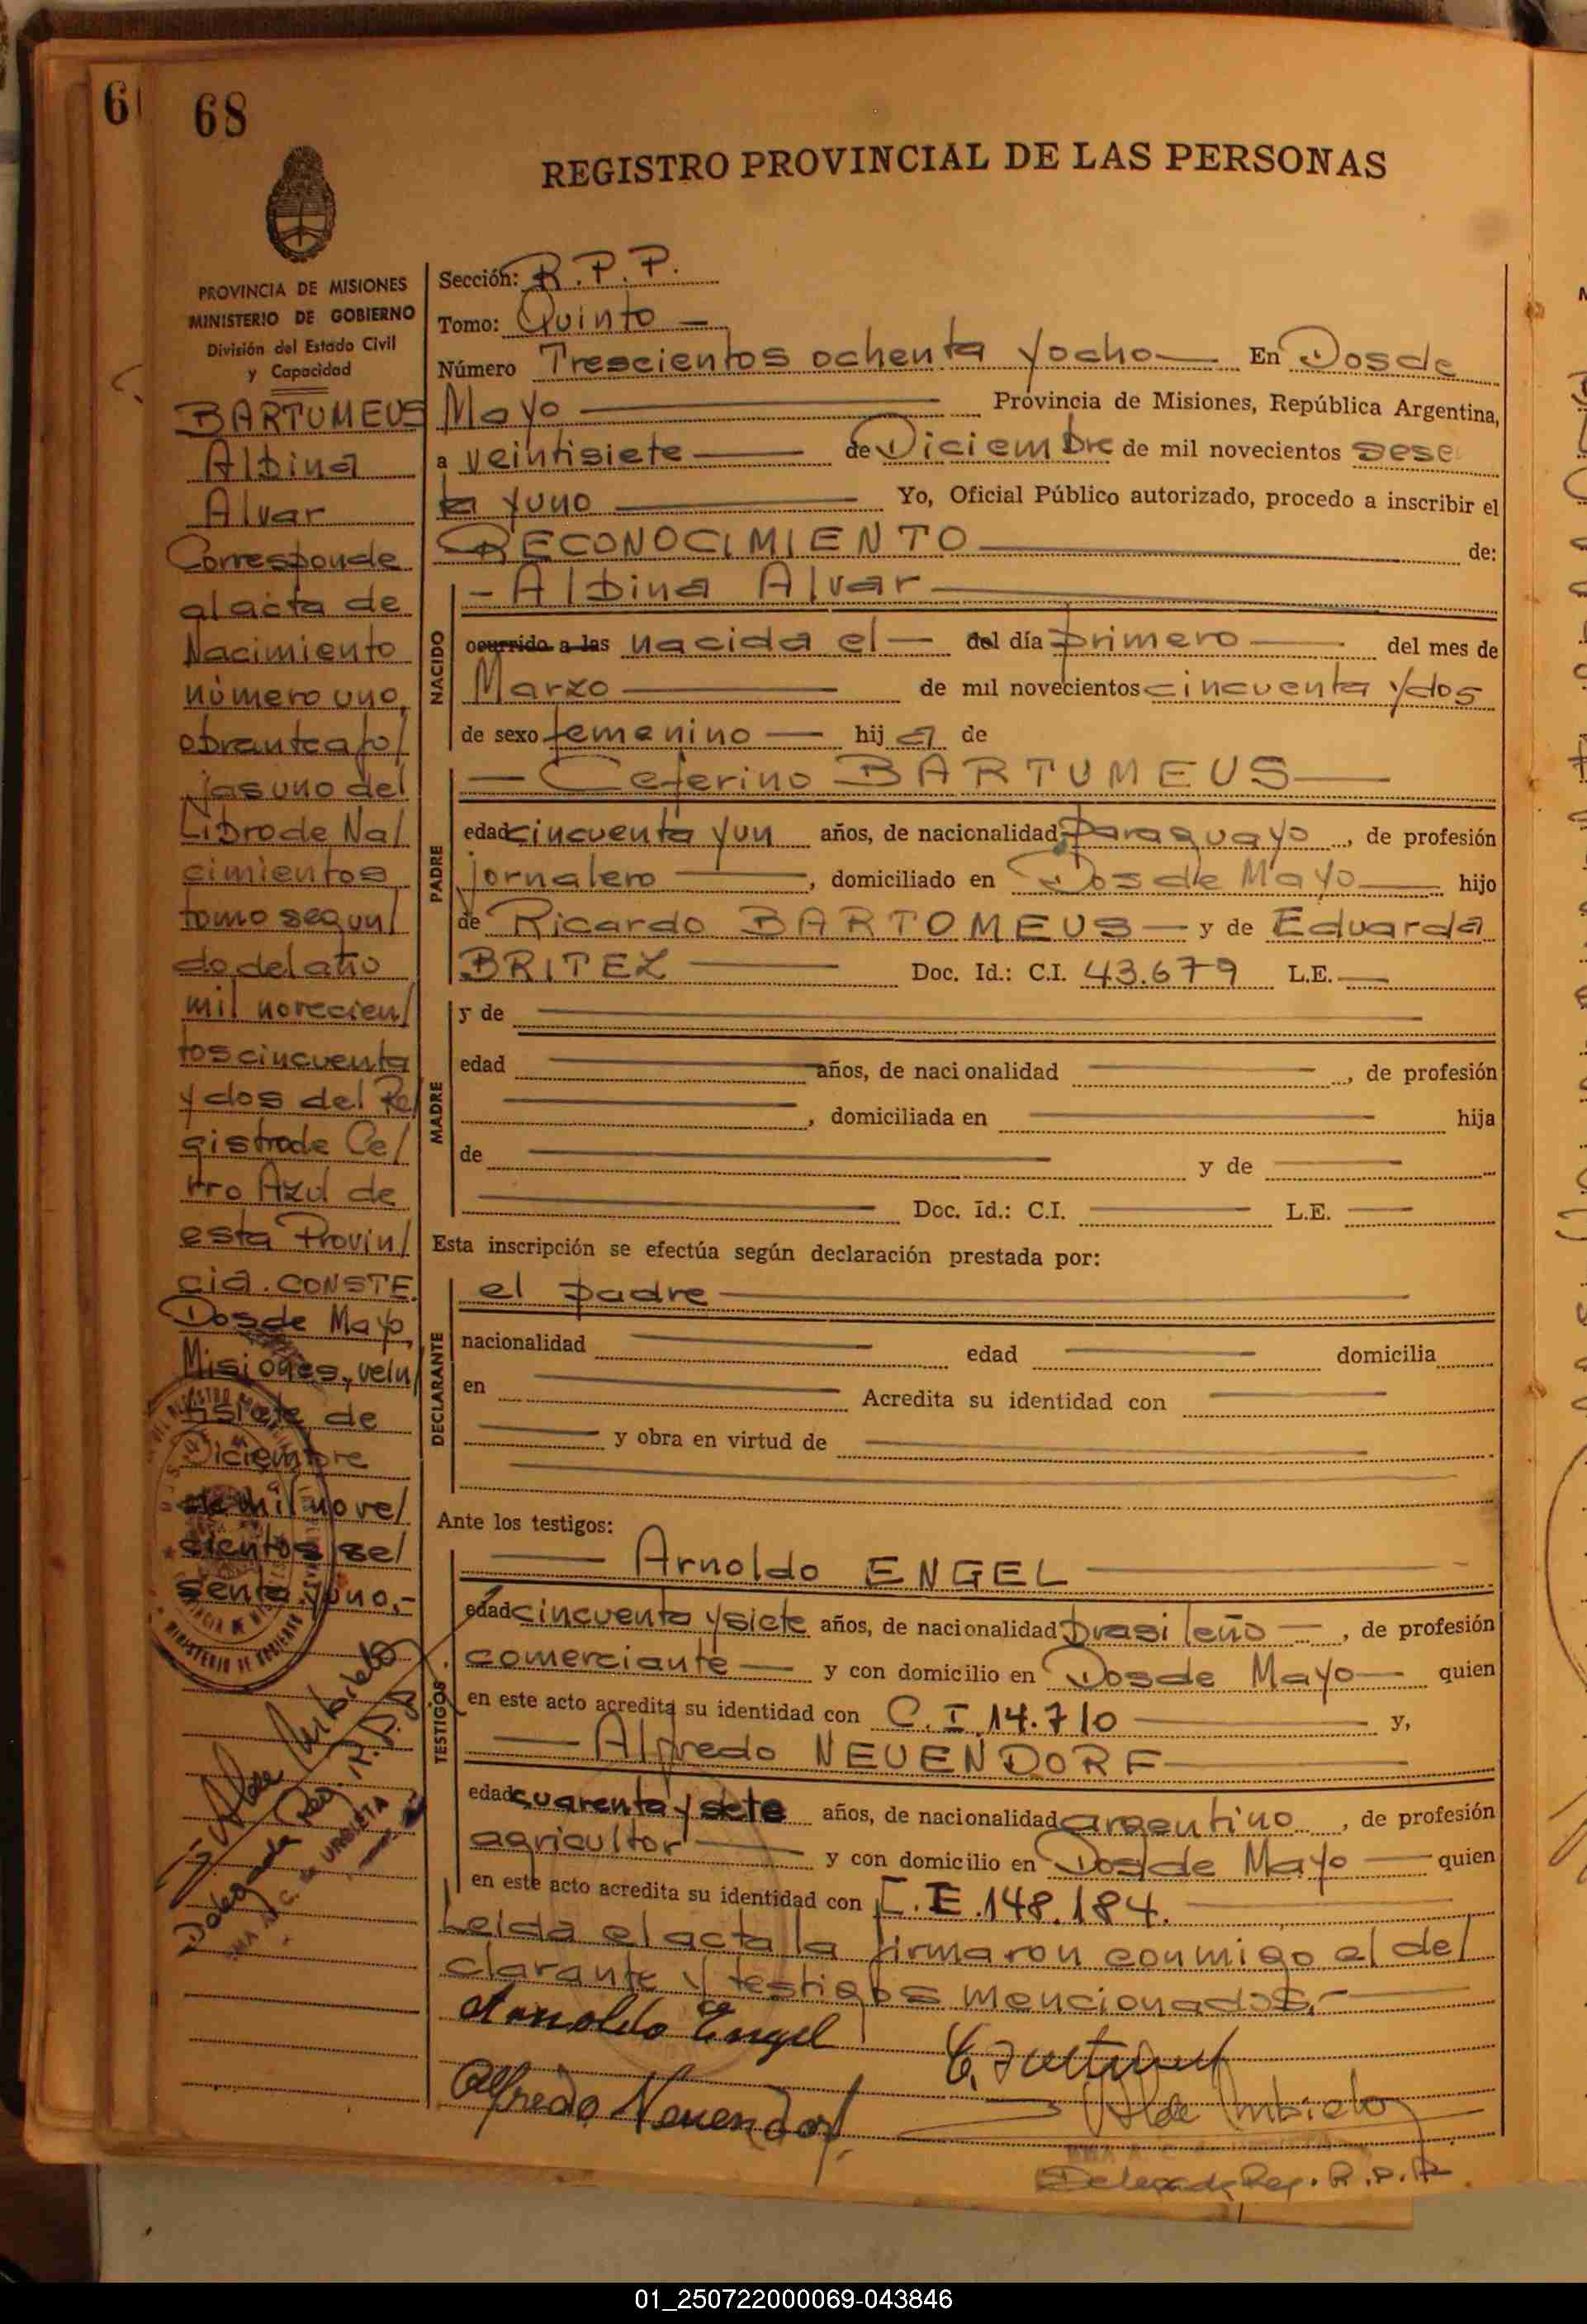 6
68
REGISTRO PROVINCIAL DE LAS PERSONAS
PROVINCIA DE MISIONES
MINISTERIO DE GOBIERNO
División del Estado Civil
y Capacidad
BARTUMEUS
Albina
Alvar
Corresponde
al acta de
Nacimiento
número uno,
obrante a fo/
jas uno del
Libro de Na/
cimientos
tomo segun/
do del año
mil novecien/
tos cincuenta
y dos del Re/
gistro de Ce/
rro Azul de
esta Provin/
cia. CONSTE.
Dos de Mayo,
Misiones, vein/
tisiete de
Diciembre
de mil nove/
cientos se/
senta y uno.-
MINISTERIO DE GOBIERNO
Sección: R.P.P.
Tomo: Quinto —
Número Trescientos ochenta y ocho — En Dos de
Mayo — Provincia de Misiones, República Argentina,
a veintisiete — de Diciembre de mil novecientos sese
ta y uno — Yo, Oficial Público autorizado, procedo a inscribir el
RECONOCIMIENTO — de:
NACIDO
- Albina Alvar —
ocurrido a las nacida el — del día primero — del mes de
Marzo — de mil novecientos cincuenta y dos
de sexo femenino — hij a de
PADRE
— Ceferino BARTUMEUS —
edad cincuenta y un años, de nacionalidad paraguayo, de profesión
jornalero —, domiciliado en Dos de Mayo — hijo
de Ricardo BARTOMEUS — y de Eduarda
BRITEZ — Doc. Id.: C.I. 43.679 L.E. —
MADRE
y de —
edad — años, de nacionalidad —, de profesión
—, domiciliada en — hija
de — y de —
— Doc. Id.: C.I. — L.E. —
Esta inscripción se efectúa según declaración prestada por:
DECLARANTE
el padre —
nacionalidad — edad — domicilia
en — Acredita su identidad con —
— y obra en virtud de —
Ante los testigos:
TESTIGOS
— Arnoldo ENGEL —
edad cincuenta y siete años, de nacionalidad brasileño —, de profesión
comerciante — y con domicilio en Dos de Mayo — quien
en este acto acredita su identidad con C.I. 14.710 — y,
— Alfredo NEUENDORF —
edad cuarenta y siete años, de nacionalidad argentino, de profesión
agricultor — y con domicilio en Dos de Mayo — quien
en este acto acredita su identidad con C.I. 148.184. —
Leida el acta la firmaron conmigo el de/
clarante y testigos mencionados.-
Arnoldo Engel
Alfredo Neuendorf
Reg. R.P.P.
01_250722000069-043846